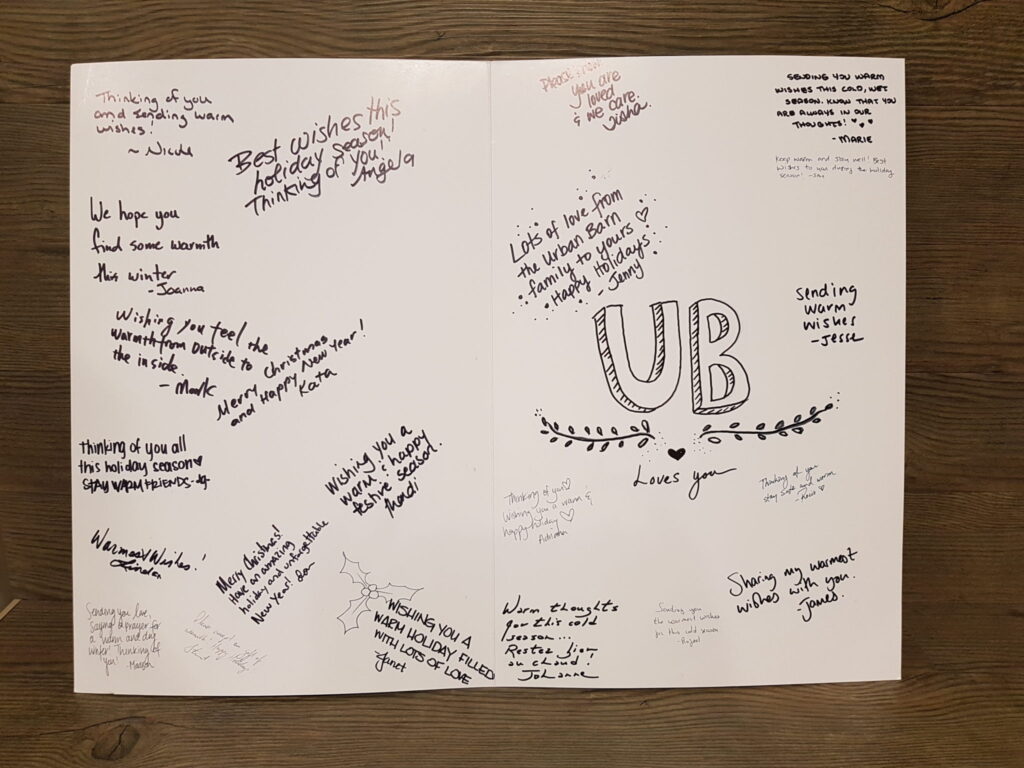 Thinking of you
and sending warm
wishes!
~ Nicole
Best wishes this
holiday season!
Thinking of you!
Angela
We hope you
find some warmth
this winter
-Joanna
Wishing you feel the
warmth from outside to
the inside
- Mark
Merry Christmas
and Happy New Year!
Kata
Thinking of you all
this holiday season♡
STAY WARM FRIENDS
Wishing you a
warm & happy
festive season.
Warmest Wishes!
Merry Christmas!
Have an amazing
holiday and unforgettable
New Year!
Sending you love,
saying a prayer for
a warm and dry
winter! Thinking of
you!
WISHING YOU A
WARM HOLIDAY FILLED
WITH LOTS OF LOVE
-Janet
Please know
you are
loved
& we care.
SENDING YOU WARM
WISHES THIS COLD, WET
SEASON. KNOW THAT YOU
ARE ALWAYS IN OUR
THOUGHTS!
- MARIE
Keep warm and stay well! Best
wishes to you during the holiday
season!
Lots of love from
the Urban Barn
family to yours ♡
Happy Holidays
- Jenny
UB
Loves you
Sending
warm
wishes
-Jesse
Thinking of you♡
Wishing you a warm &
happy holiday ♡
Adriana
Thinking of you
stay safe and warm
Warm thoughts
for this cold
season...
Restez
au chaud!
Johanne
Sending you
the warmest wishes
in this cold season
Sharing my warmest
wishes with you.
James.